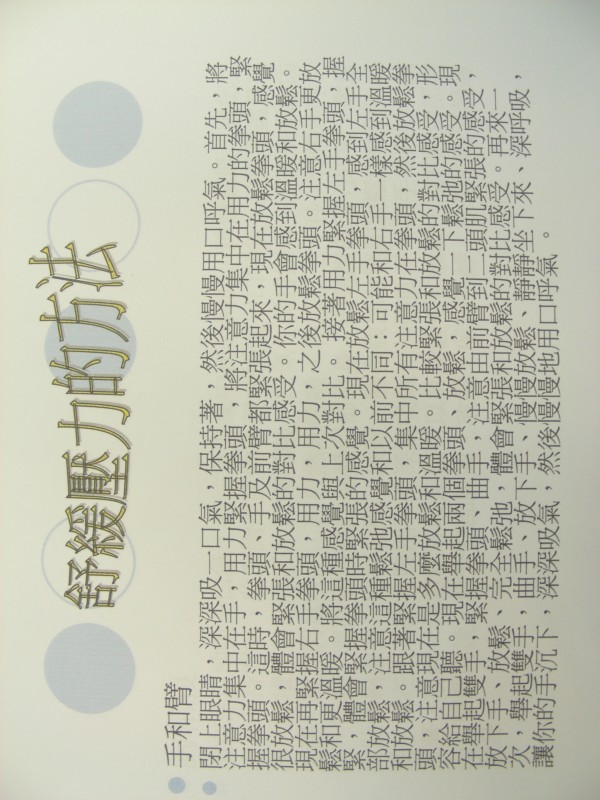 舒緩壓力的方法
手和臂
閉上眼睛，深深吸一口氣，保持著，然後慢慢用口呼氣。首先，將
注意力集中在手，用力緊握拳頭，將注意力集中在用力的拳頭，緊
握拳頭。這時，拳頭、手及前臂都緊張起來，現在放鬆拳頭，感覺
很放鬆，體會緊張和放鬆的對比感受。你的手會感到溫暖和放鬆。
現在再緊握右手拳頭，用力，用力，之後放鬆拳頭。注意右手更放
鬆和更溫暖。將這種感覺與上次對比。接著用力緊握左手拳頭，握
緊，體會緊握拳頭時緊張的感覺。現在放鬆左手拳頭，感到左手全
部放鬆，注意這種鬆弛感覺和以前不同：可能和右手一樣感到溫暖
和放鬆。跟著緊握左手拳頭，集中所有注意力在拳頭，然後放鬆拳
頭，注意現在是多麼放鬆和溫暖。比較緊張和放鬆的對比感受，形
容給自己聽。現在舉起兩個拳頭、放鬆，感覺一下鬆弛的感受。現
在舉起雙手，緊握拳頭、曲手，注意由前臂到二頭肌緊張的感受，
放下手、放鬆、完全鬆弛，體會緊張和放鬆的對比感受。再來一
次，舉起雙手，曲手、放下手、慢慢放鬆、靜靜坐下來、深呼吸，
讓你的手沉下，深深吸氣，然後慢慢地用口呼氣。